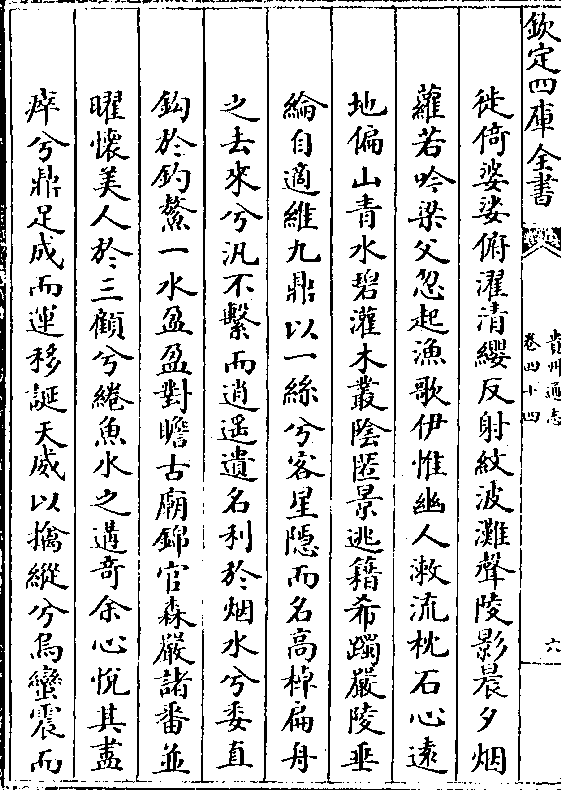 欽定四庫全書
貴州通志
卷四十四
六
徙倚婆娑俯濯清纓反射紋波灘聲陵影晨夕烟
蘿若吟梁父忽起漁歌伊惟幽人漱流枕石心遠
地偏山青水碧灌木叢陰匿景逃籍希躅嚴陵垂
綸自適維九鼎以一絲兮客星隠而名高棹扁舟
之去來兮汎不繫而逍遥遺名利於烟水兮委直
鈎於釣鰲一水盈盈對瞻古廟錦官森嚴諸番並
曜懷美人於三顧兮綣魚水之遘竒余心悦其盡
瘁兮鼎足成而運移誕天威以擒縱兮烏蠻震而